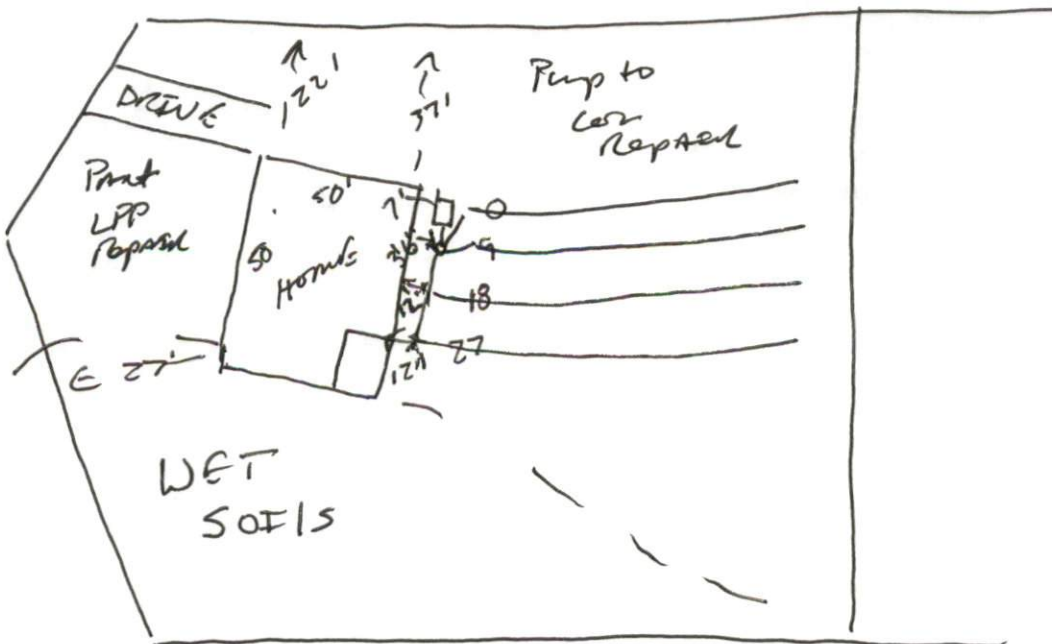 DRIVE
22'
37'
Pump to
Repair
Part
LPP
Repair
50'
50
HOME
7'
0
9
18
27
12"
27'
WET
SOILS